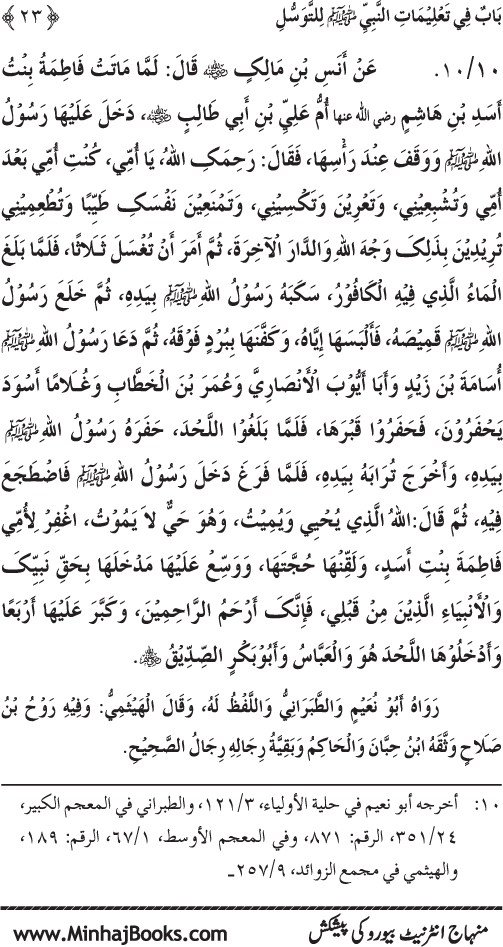 بَابٌ فِي تَعْلِيْمَاتِ النَّبِيِّ ﷺ لِلتَّوَسُّلِ ﴿ ٢٣ ﴾
١٠/١٠. عَنْ أَنَسِ بْنِ مَالِكٍ ﷺ قَالَ: لَمَّا مَاتَتْ فَاطِمَةُ بِنْتُ
أَسَدِ بْنِ هَاشِمٍ رضي الله عنها أُمُّ عَلِيِّ بْنِ أَبِي طَالِبٍ ﷺ، دَخَلَ عَلَيْهَا رَسُوْلُ
اللهِ ﷺ وَوَقَفَ عِنْدَ رَأْسِهَا، فَقَالَ: رَحِمَكِ اللهُ، يَا أُمِّي، كُنْتِ أُمِّي بَعْدَ
أُمِّي وَتُشْبِعِيْنِي، وَتَعْرِيْنَ وَتَكْسِيْنِي، وَتَمْنَعِيْنَ نَفْسَكِ طَيِّبًا وَتُطْعِمِيْنِي
تُرِيْدِيْنَ بِذَلِكَ وَجْهَ اللهِ وَالدَّارَ الْآخِرَةَ، ثُمَّ أَمَرَ أَنْ تُغْسَلَ ثَلَاثًا، فَلَمَّا بَلَغَ
الْمَاءُ الَّذِي فِيْهِ الْكَافُوْرُ، سَكَبَهُ رَسُوْلُ اللهِ ﷺ بِيَدِهِ، ثُمَّ خَلَعَ رَسُوْلُ
اللهِ ﷺ قَمِيْصَهُ، فَأَلْبَسَهَا إِيَّاهُ، وَكَفَّنَهَا بِبُرْدٍ فَوْقَهُ، ثُمَّ دَعَا رَسُوْلُ اللهِ ﷺ
أُسَامَةَ بْنَ زَيْدٍ وَأَبَا أَيُّوْبَ الْأَنْصَارِيَّ وَعُمَرَ بْنَ الْخَطَّابِ وَغُلَامًا أَسْوَدَ
يَحْفَرُوْنَ، فَحَفَرُوْا قَبْرَهَا، فَلَمَّا بَلَغُوْا اللَّحْدَ، حَفَرَهُ رَسُوْلُ اللهِ ﷺ
بِيَدِهِ، وَأَخْرَجَ تُرَابَهُ بِيَدِهِ، فَلَمَّا فَرَغَ دَخَلَ رَسُوْلُ اللهِ ﷺ فَاضْطَجَعَ
فِيْهِ، ثُمَّ قَالَ: اللهُ الَّذِي يُحْيِي وَيُمِيْتُ، وَهُوَ حَيٌّ لاَ يَمُوْتُ، اغْفِرْ لِأُمِّي
فَاطِمَةَ بِنْتِ أَسَدٍ، وَلَقِّنْهَا حُجَّتَهَا، وَوَسِّعْ عَلَيْهَا مَدْخَلَهَا بِحَقِّ نَبِيِّكَ
وَالْأَنْبِيَاءِ الَّذِيْنَ مِنْ قَبْلِي، فَإِنَّكَ أَرْحَمُ الرَّاحِمِيْنَ، وَكَبَّرَ عَلَيْهَا أَرْبَعًا
وَأَدْخَلُوْهَا اللَّحْدَ هُوَ وَالْعَبَّاسُ وَأَبُوْبَكْرٍ الصِّدِّيْقُ ﷺ.
رَوَاهُ أَبُوْ نُعَيْمٍ وَالطَّبَرَانِيُّ وَاللَّفْظُ لَهُ، وَقَالَ الْهَيْثَمِيُّ: وَفِيْهِ رَوْحُ بْنُ
صَلَاحٍ وَثَّقَهُ ابْنُ حِبَّانَ وَالْحَاكِمُ وَبَقِيَّةُ رِجَالِهِ رِجَالُ الصَّحِيْحِ.
١٠: أخرجه أبو نعيم في حلية الأولياء، ٣/١٢١، والطبراني في المعجم الكبير،
٢٤/٣٥١، الرقم: ٨٧١، وفي المعجم الأوسط، ١/٦٧، الرقم: ١٨٩،
والهيثمي في مجمع الزوائد، ٩/٢٥٧۔
منہاج انٹرنیٹ بیورو کی پیشکش www.MinhajBooks.com